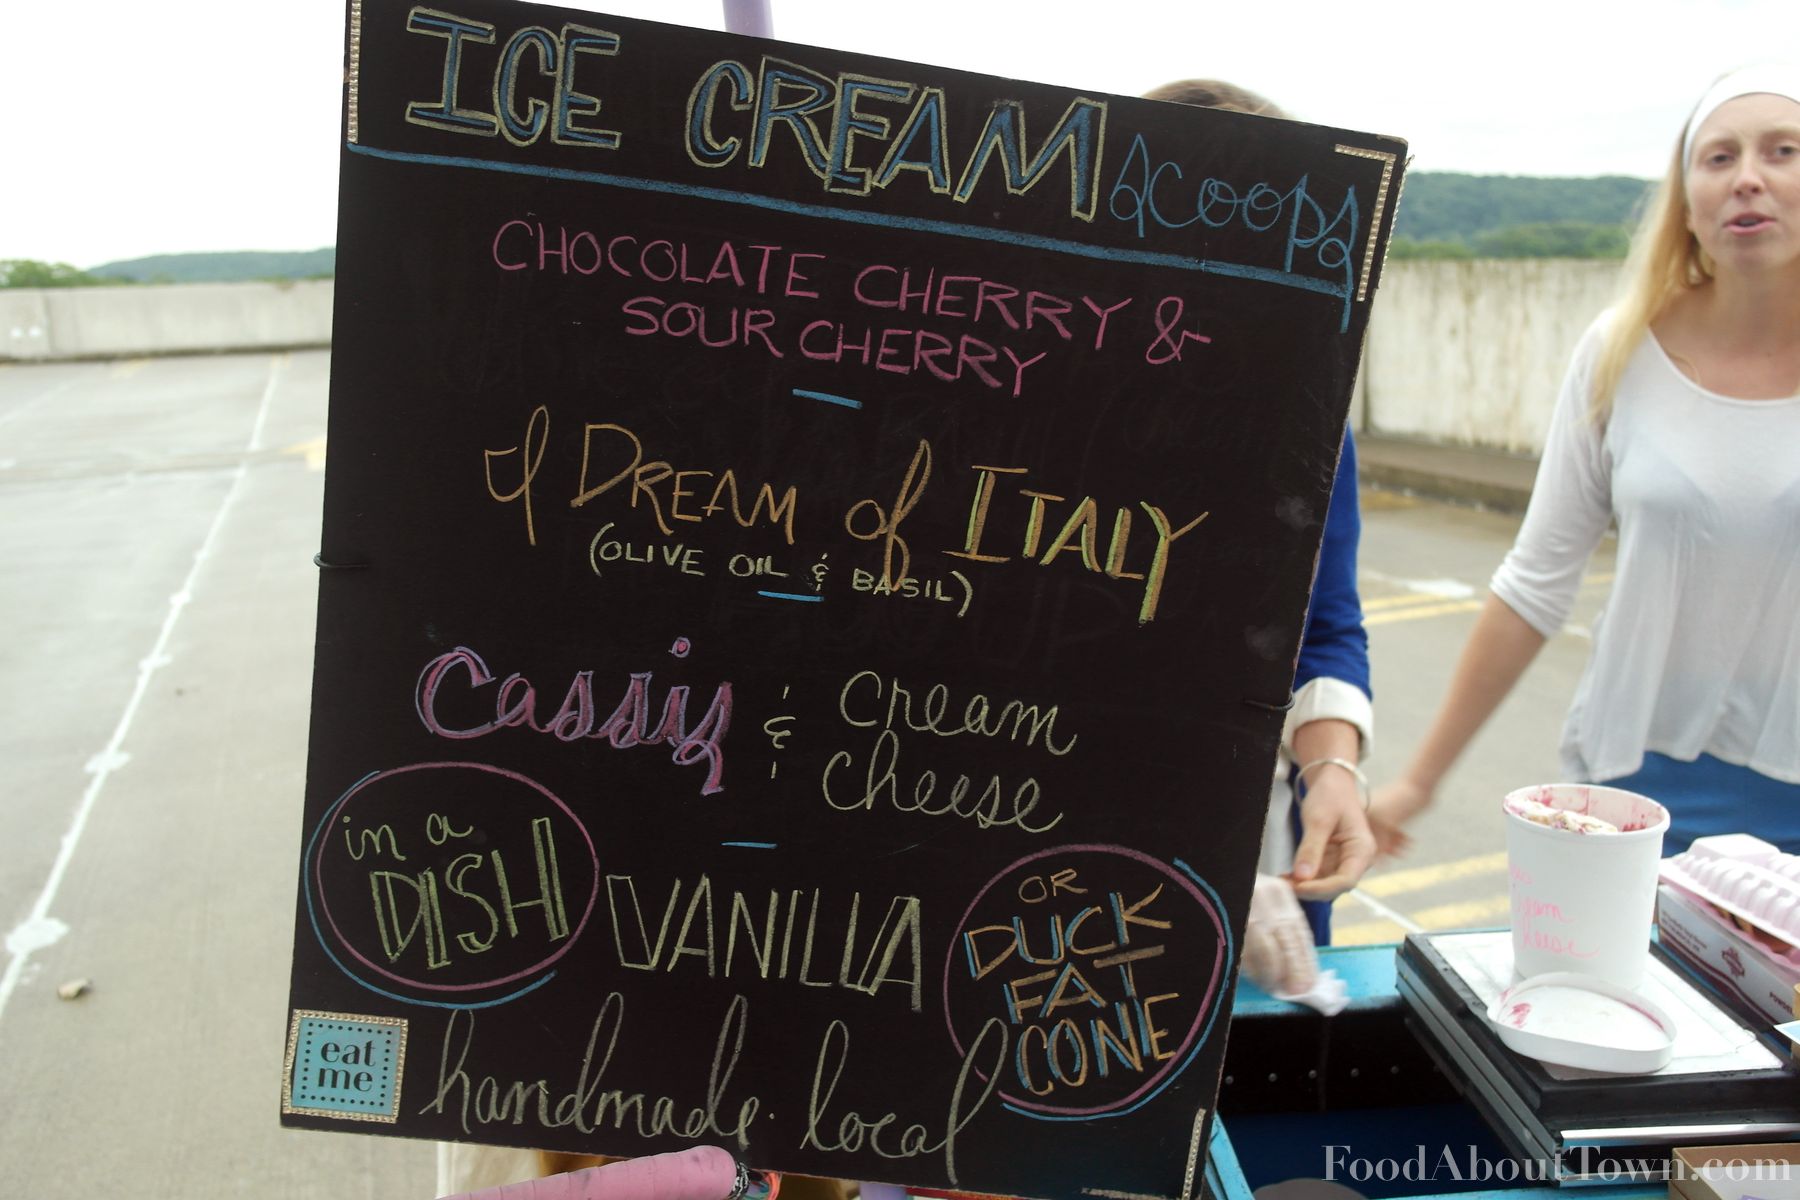 ICE CREAM scoops
CHOCOLATE CHERRY &
SOUR CHERRY
I DREAM of ITALY
(OLIVE OIL & BASIL)
cassis & cream
cheese
in a
DISH
VANILLA
OR
DUCK
FAT
CONE
eat
me
handmade. local
Cream
cheese
FoodAboutTown.com